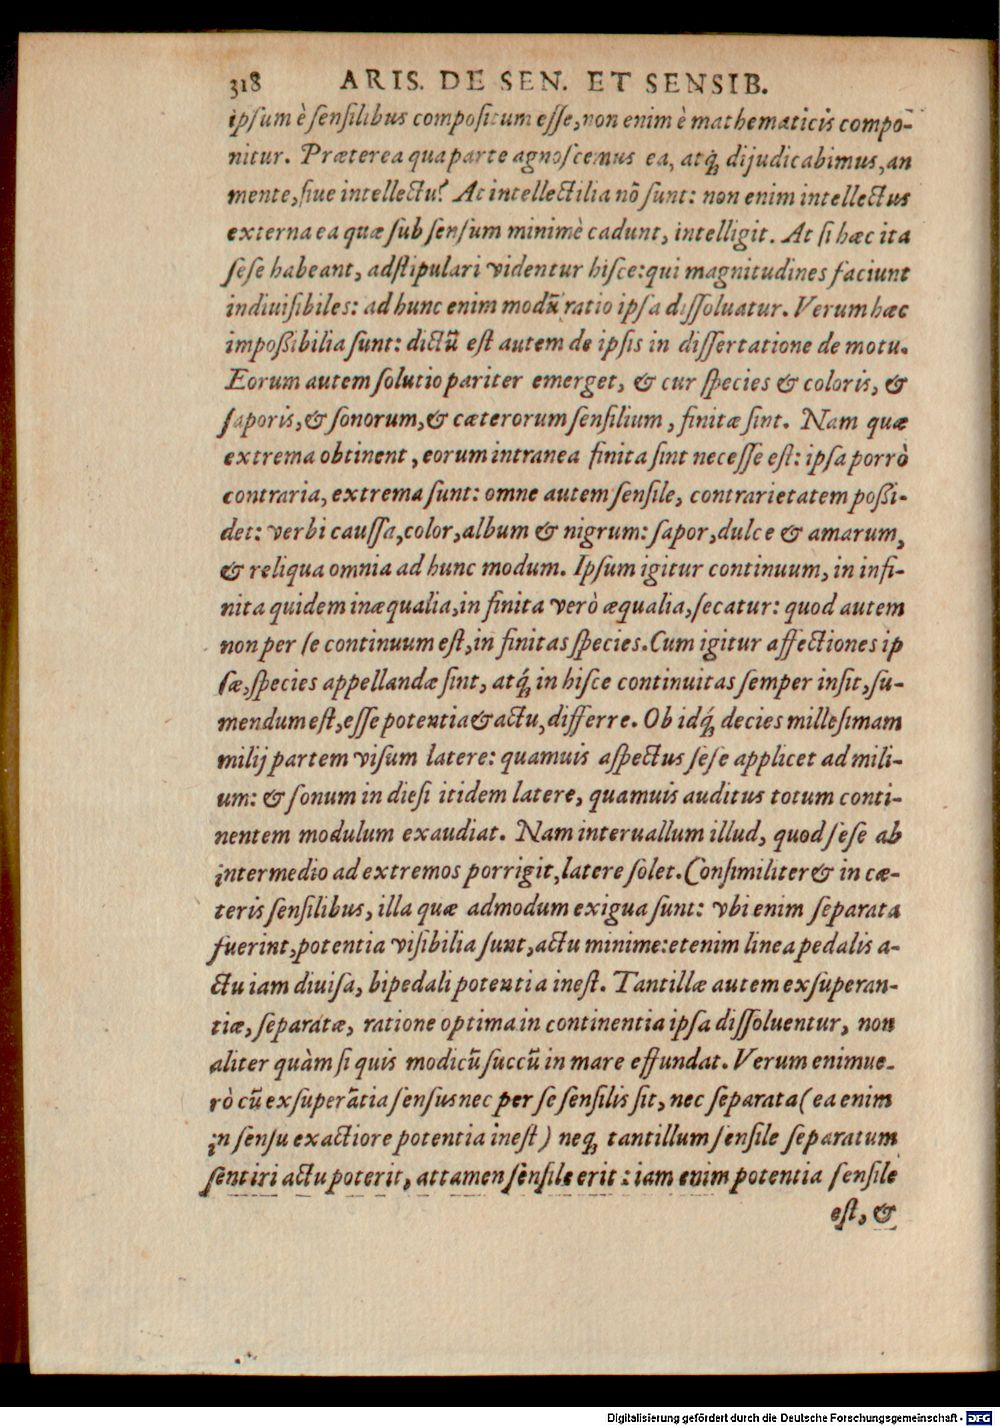 318 ARIS. DE SEN. ET SENSIB.
ipſum è ſenſilibus compoſitum eſſe, non enim è mathematicis compo-
nitur. Præterea qua parte agnoſcemus ea, atq́ꝫ dijudicabimus, an
mente, ſiue intellectu? At intellectilia nō ſunt: non enim intellectus
externa ea quæ ſub ſenſum minimè cadunt, intelligit. At ſi hæc ita
ſeſe habeant, adſtipulari videntur hiſce: qui magnitudines faciunt
indiuiſibiles: ad hunc enim modū ratio ipſa diſſoluatur. Verum hæc
impoßibilia ſunt: dictū eſt autem de ipſis in diſſertatione de motu.
Eorum autem ſolutio pariter emerget, & cur ſpecies & coloris, &
ſaporis, & ſonorum, & cæterorum ſenſilium, finitæ ſint. Nam quæ
extrema obtinent, eorum intranea finita ſint neceſſe eſt: ipſa porrò
contraria, extrema ſunt: omne autem ſenſile, contrarietatem poßi-
det: verbi cauſſa, color, album & nigrum: ſapor, dulce & amarum,
& reliqua omnia ad hunc modum. Ipſum igitur continuum, in infi-
nita quidem inæqualia, in finita verò æqualia, ſecatur: quod autem
non per ſe continuum eſt, in finitas ſpecies. Cum igitur affectiones ip
ſæ, ſpecies appellandæ ſint, atq́ꝫ in hiſce continuitas ſemper inſit, ſu-
mendum eſt, eſſe potentia & actu, differre. Ob idq́ꝫ decies milleſimam
milij partem viſum latere: quamuis aſpectus ſeſe applicet ad mili-
um: & ſonum in dieſi itidem latere, quamuis auditus totum conti-
nentem modulum exaudiat. Nam interuallum illud, quod ſeſe ab
intermedio ad extremos porrigit, latere ſolet. Conſimiliter & in cæ-
teris ſenſilibus, illa quæ admodum exigua ſunt: vbi enim ſeparata
fuerint, potentia viſibilia ſunt, actu minime: etenim linea pedalis a-
ctu iam diuiſa, bipedali potentia ineſt. Tantillæ autem exſuperan-
tiæ, ſeparatæ, ratione optima in continentia ipſa diſſoluentur, non
aliter quàm ſi quis modicū ſuccū in mare effundat. Verum enimue-
rò cū exſuperātia ſenſus nec per ſe ſenſilis ſit, nec ſeparata (ea enim
in ſenſu exactiore potentia ineſt) neqꝫ tantillum ſenſile ſeparatum
ſentiri actu poterit, attamen ſenſile erit: iam enim potentia ſenſile
eſt, &
Digitalisierung gefördert durch die Deutsche Forschungsgemeinschaft - DFG